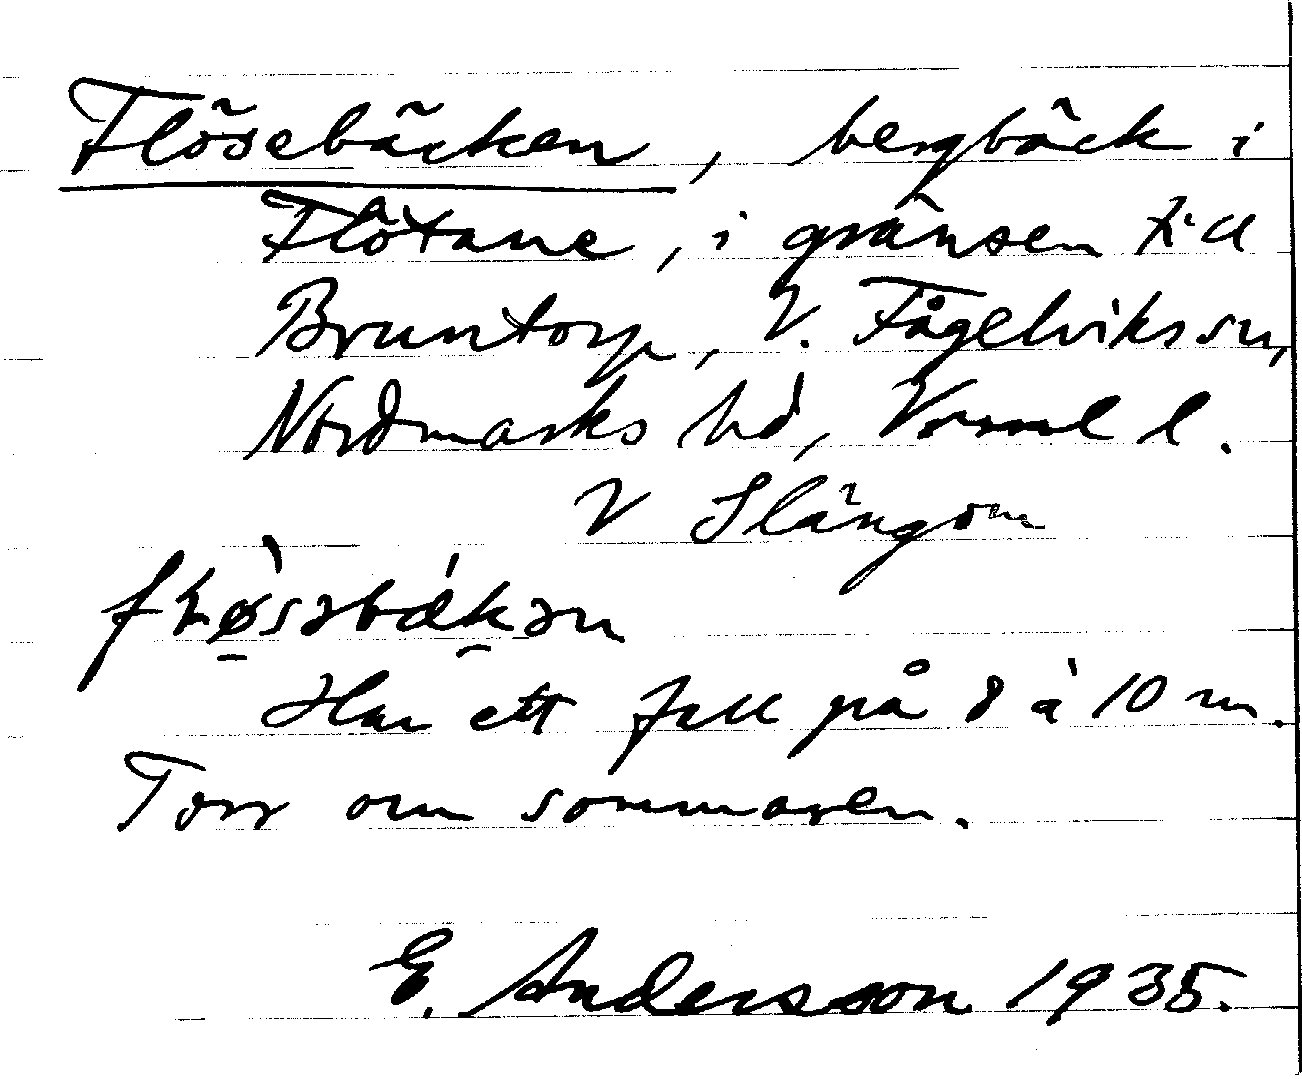 Flösebäcken, bergbäck i
Flötane, i gränsen till
Bruntorp, V. Fågelviks sn,
Nordmarks hd, Vrml l.
V Slängom
Har ett fall på 8 à 10 m.
Torr om sommaren.
E. Andersson 1935.